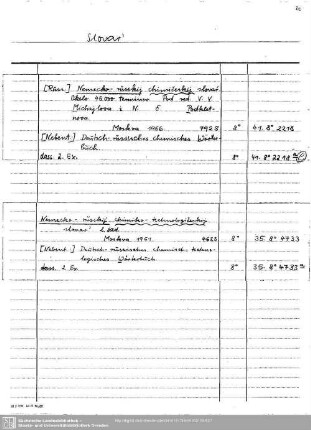 Slovar'
[Russ.] Nemecko-russkij chimičeskij slovar'
Okolo 45000 terminov. Pod red. V. V.
Michajlova i N. E. Podkletnova.
Moskva 1966. 8° 41. 8° 2218
[Nebent.] Deutsch-russisches chemisches Wörter-
buch.
dass. 2. Ex. 8° 41. 8° 2218
Nemecko-russkij chimiko-technologičeskij
slovar' 2. izd.
Moskva 1951. 8° 35. 8° 4733
[Nebent.] Deutsch-russisches chemisch-techno-
logisches Wörterbuch
dass. 2 Ex. 8° 35. 8° 4733
Sächsische Landesbibliothek -
Staats- und Universitätsbibliothek Dresden